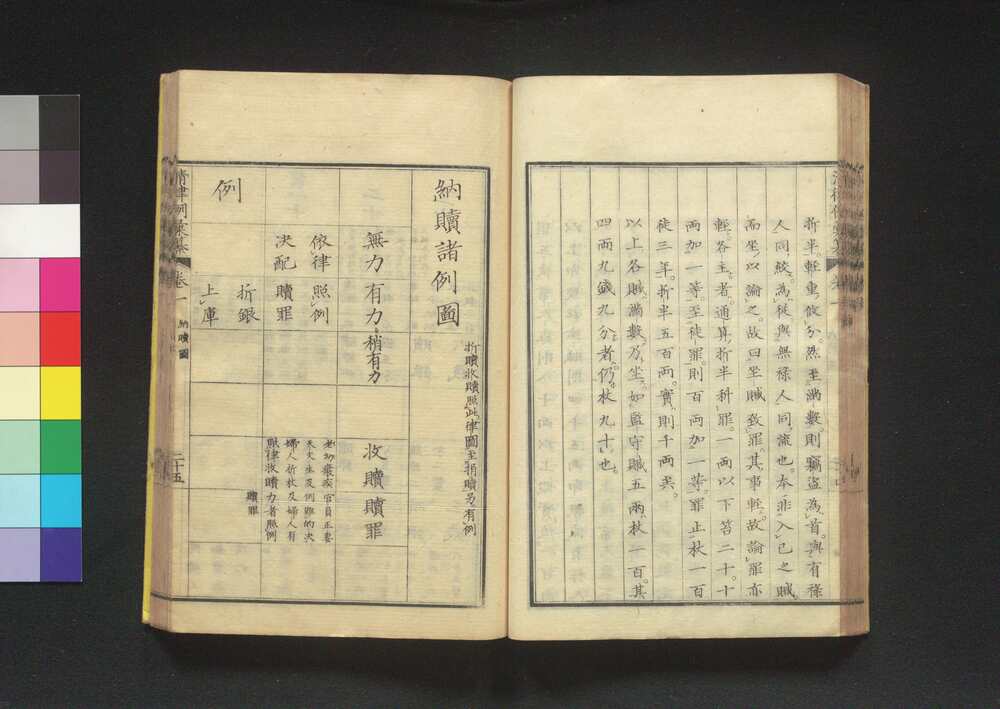 折半輕重攸分然至滿數則竊盜爲首與有祿
人同絞爲從與無祿人同流也本非入己之贓
而坐以論之故曰坐贓致罪其事輕故論罪亦
輕各主者通算折半科罪一兩以下笞二十十
兩加一等至徒罪則百兩加一等罪止杖一百
徒三年折半五百兩實則千兩矣
以上各贓滿數乃坐如監守贓五兩杖一百其
四兩九錢九分者仍杖九十也
納贖諸例圖
折贖收贖照此律圖至捐贖另有例
無力
有力
稍有力
收贖
贖罪
例
依律決配
照例贖罪
老幼癈疾官員正妻
天文生及例難的決
婦人折杖及婦人有
力者照例
照律收贖
贖罪
折銀上庫
卷一
納贖圖
二十五